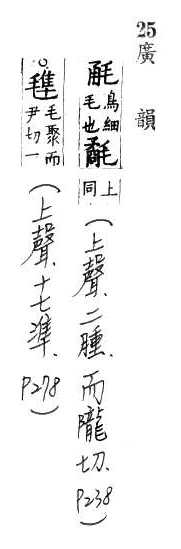 25 廣韻
鳥細毛也 上同 (上聲.二腫.而隴切.P238)
毛聚而尹切一 (上聲.十七準.P278)